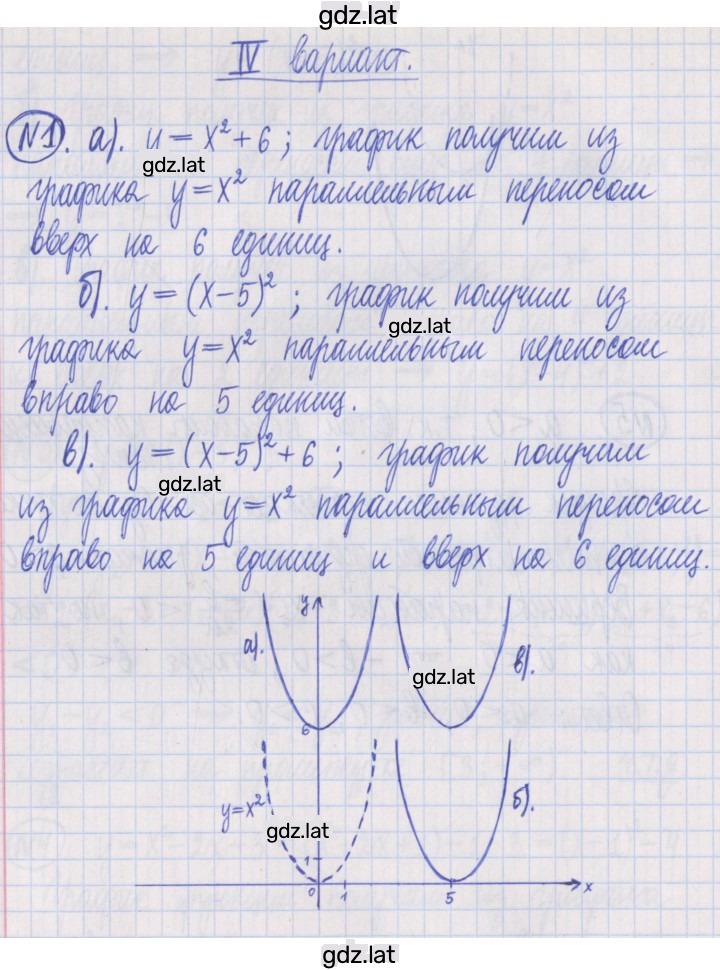 gdz.lat
IV вариант.
№1. а). y = x² + 6 ; график получим из
gdz.lat
графика y = x² параллельным переносом
вверх на 6 единиц.
б). y = (x – 5)² ; график получим из
gdz.lat
графика y = x² параллельным переносом
вправо на 5 единиц.
в). y = (x – 5)² + 6 ; график получим
gdz.lat
из графика y = x² параллельным переносом
вправо на 5 единиц и вверх на 6 единиц.
y
а).
в).
gdz.lat
6
y = x²
б).
gdz.lat
1
0 1 5 x
gdz.lat